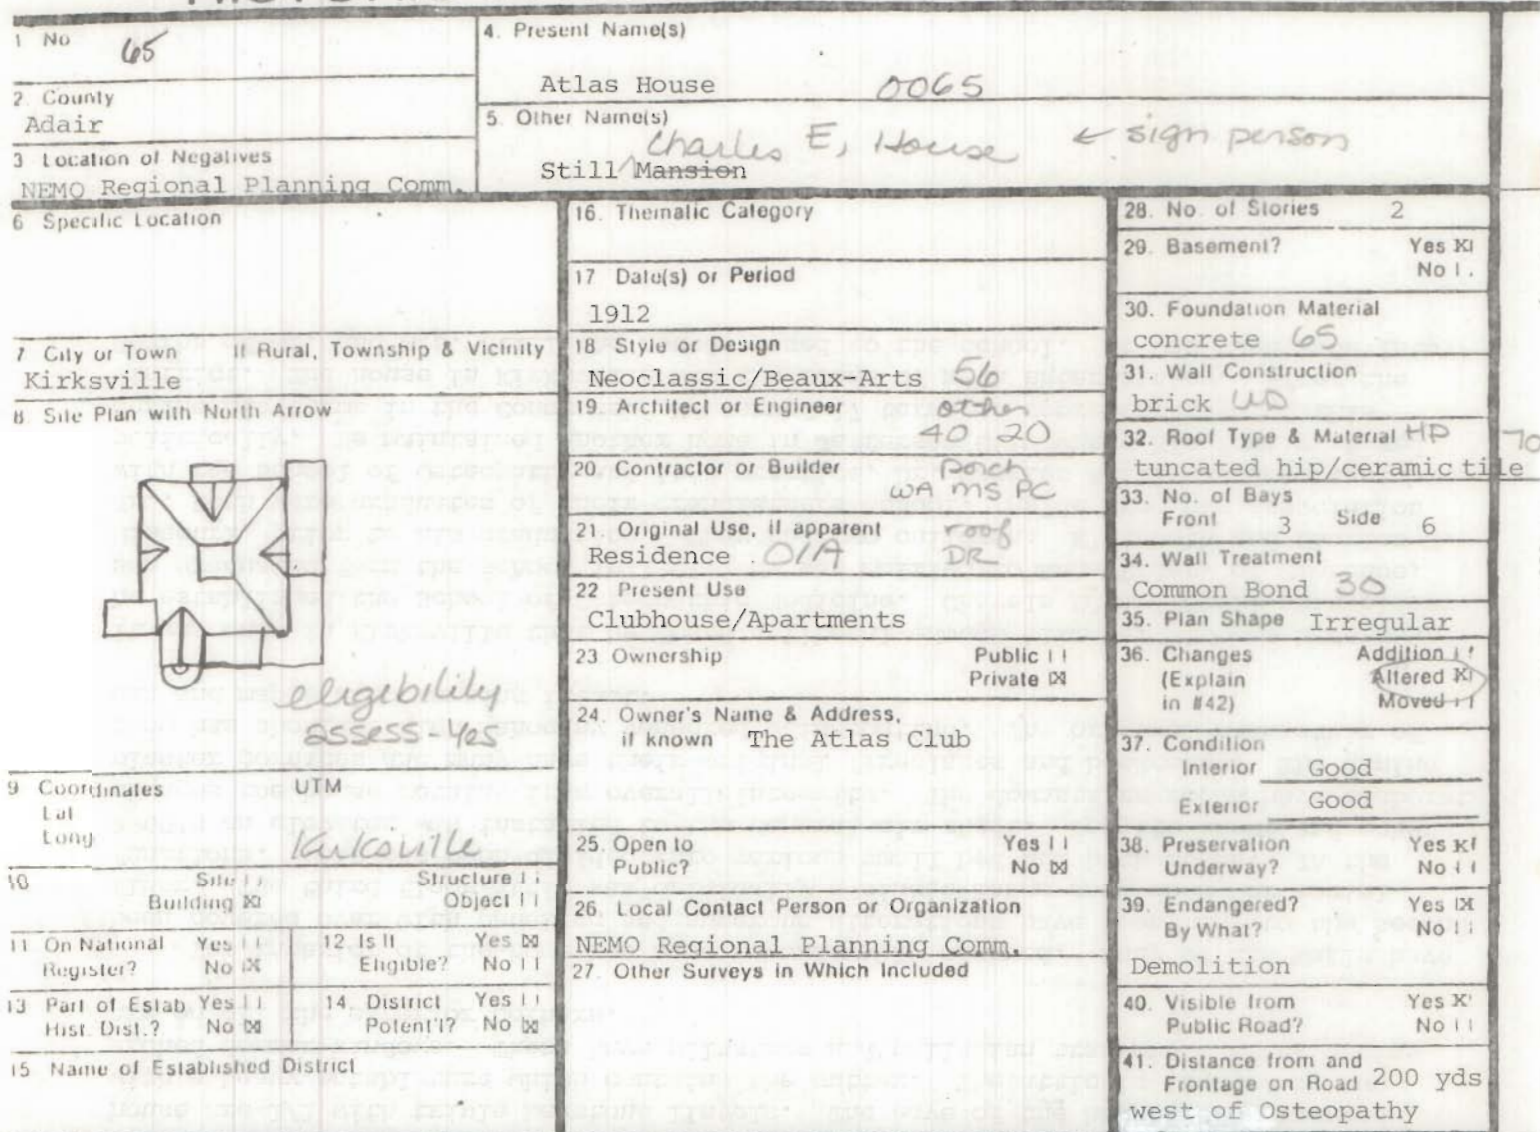 1 No 65
2. County
Adair
3 Location of Negatives
NEMO Regional Planning Comm.
4. Present Name(s)
Atlas House 0065
5. Other Name(s)
Charles E, House ← sign person
Still Mansion
6 Specific Location
7 City or Town If Rural, Township & Vicinity
Kirksville
8 Site Plan with North Arrow
eligibility
assess-yes
9 Coordinates UTM
Lat
Long
Kirksville
10 Site Structure
Building ☒ Object
11 On National Register? Yes No ☒
12 Is It Eligible? Yes ☒ No
13 Part of Estab Hist. Dist.? Yes No ☒
14. District Potent'l? Yes No ☒
15 Name of Established District
16. Thematic Category
17 Date(s) or Period
1912
18 Style or Design
Neoclassic/Beaux-Arts 56
19 Architect or Engineer other
40 20
20 Contractor or Builder porch
WA MS PC
21 Original Use, if apparent roof
Residence 01A DR
22 Present Use
Clubhouse/Apartments
23 Ownership Public
Private ☒
24. Owner's Name & Address,
if known The Atlas Club
25. Open to Yes
Public? No ☒
26. Local Contact Person or Organization
NEMO Regional Planning Comm.
27. Other Surveys in Which Included
28. No. of Stories 2
29. Basement? Yes ☒
No
30. Foundation Material
concrete 65
31. Wall Construction
brick
32. Roof Type & Material HP 70
tuncated hip/ceramic tile
33. No. of Bays
Front 3 Side 6
34. Wall Treatment
Common Bond 30
35. Plan Shape Irregular
36. Changes Addition
(Explain Altered ☒
in #42) Moved
37. Condition
Interior Good
Exterior Good
38. Preservation Yes ☒
Underway? No
39. Endangered? Yes ☒
By What? No
Demolition
40. Visible from Yes ☒
Public Road? No
41. Distance from and
Frontage on Road 200 yds
west of Osteopathy